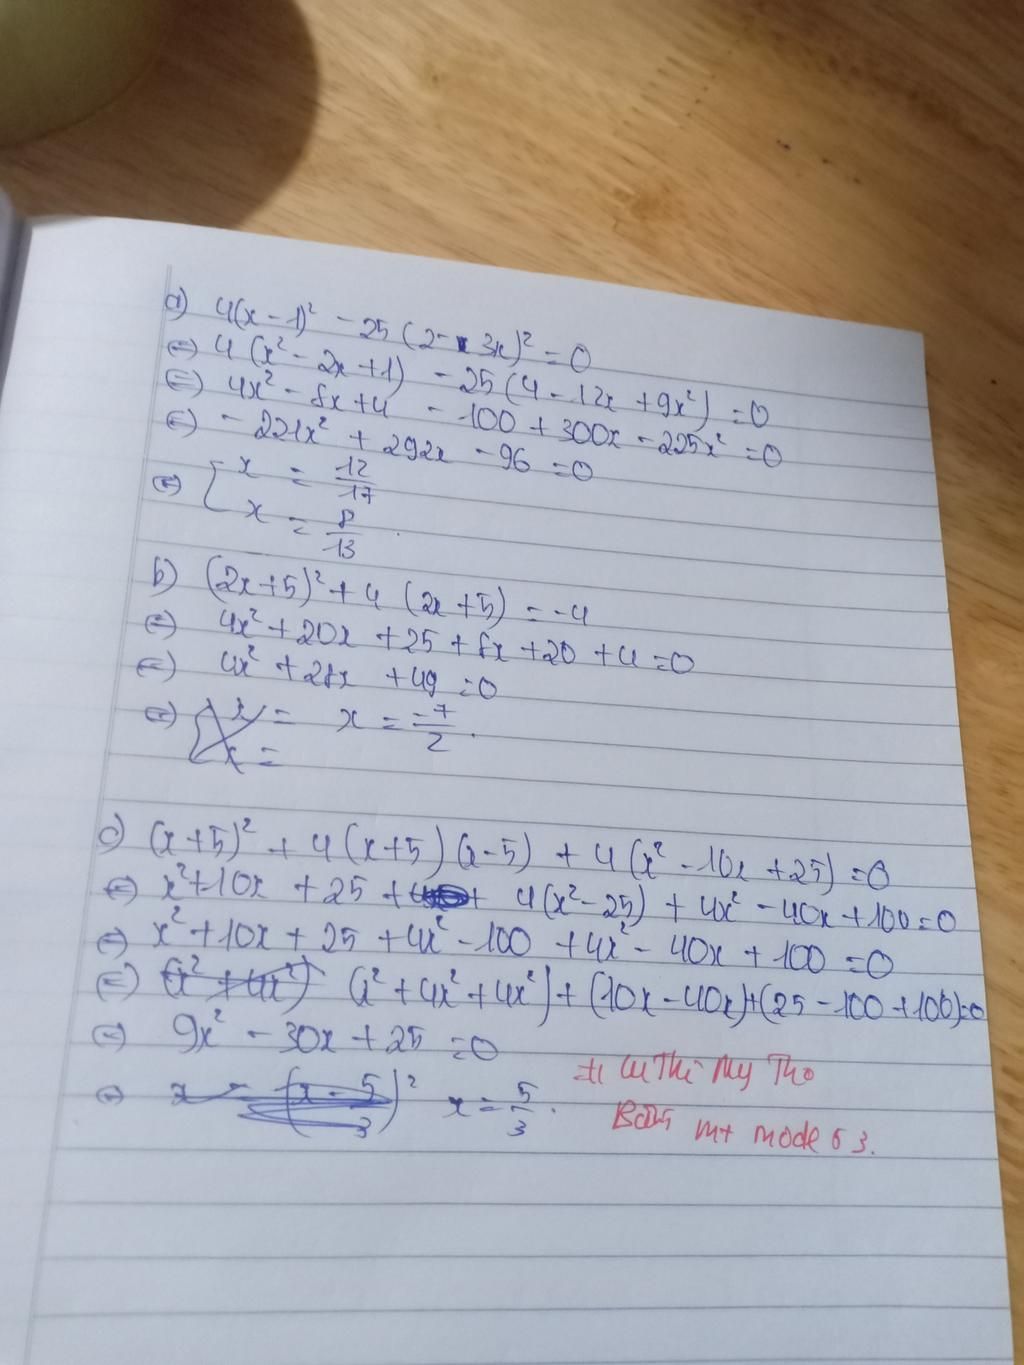 a) 4(x - 1)² - 25 (2 - 3x)² = 0
(=) 4 (x² - 2x + 1) - 25 (4 - 12x + 9x²) = 0
(=) 4x² - 8x + 4 - 100 + 300x - 225x² = 0
(=) - 221x² + 292x - 96 = 0
(=) [ x = 12/17
x = 8/13 .
b) (2x + 5)² + 4 (2x + 5) = -4
(=) 4x² + 20x + 25 + 8x + 20 + 4 = 0
(=) 4x² + 28x + 49 = 0
(=) x = x = -7/2 .
x =
c) (x + 5)² + 4 (x + 5) (x - 5) + 4 (x² - 10x + 25) = 0
(=) x² + 10x + 25 + 4(x² - 25) + 4x² - 40x + 100 = 0
(=) x² + 10x + 25 + 4x² - 100 + 4x² - 40x + 100 = 0
(=) (x² + 4x²) (x² + 4x² + 4x²) + (10x - 40x) + (25 - 100 + 100) = 0
(=) 9x² - 30x + 25 = 0
(=) x = (x - 5/3)² x = 5/3 .
Thi My Tho
mt mode 5 3.